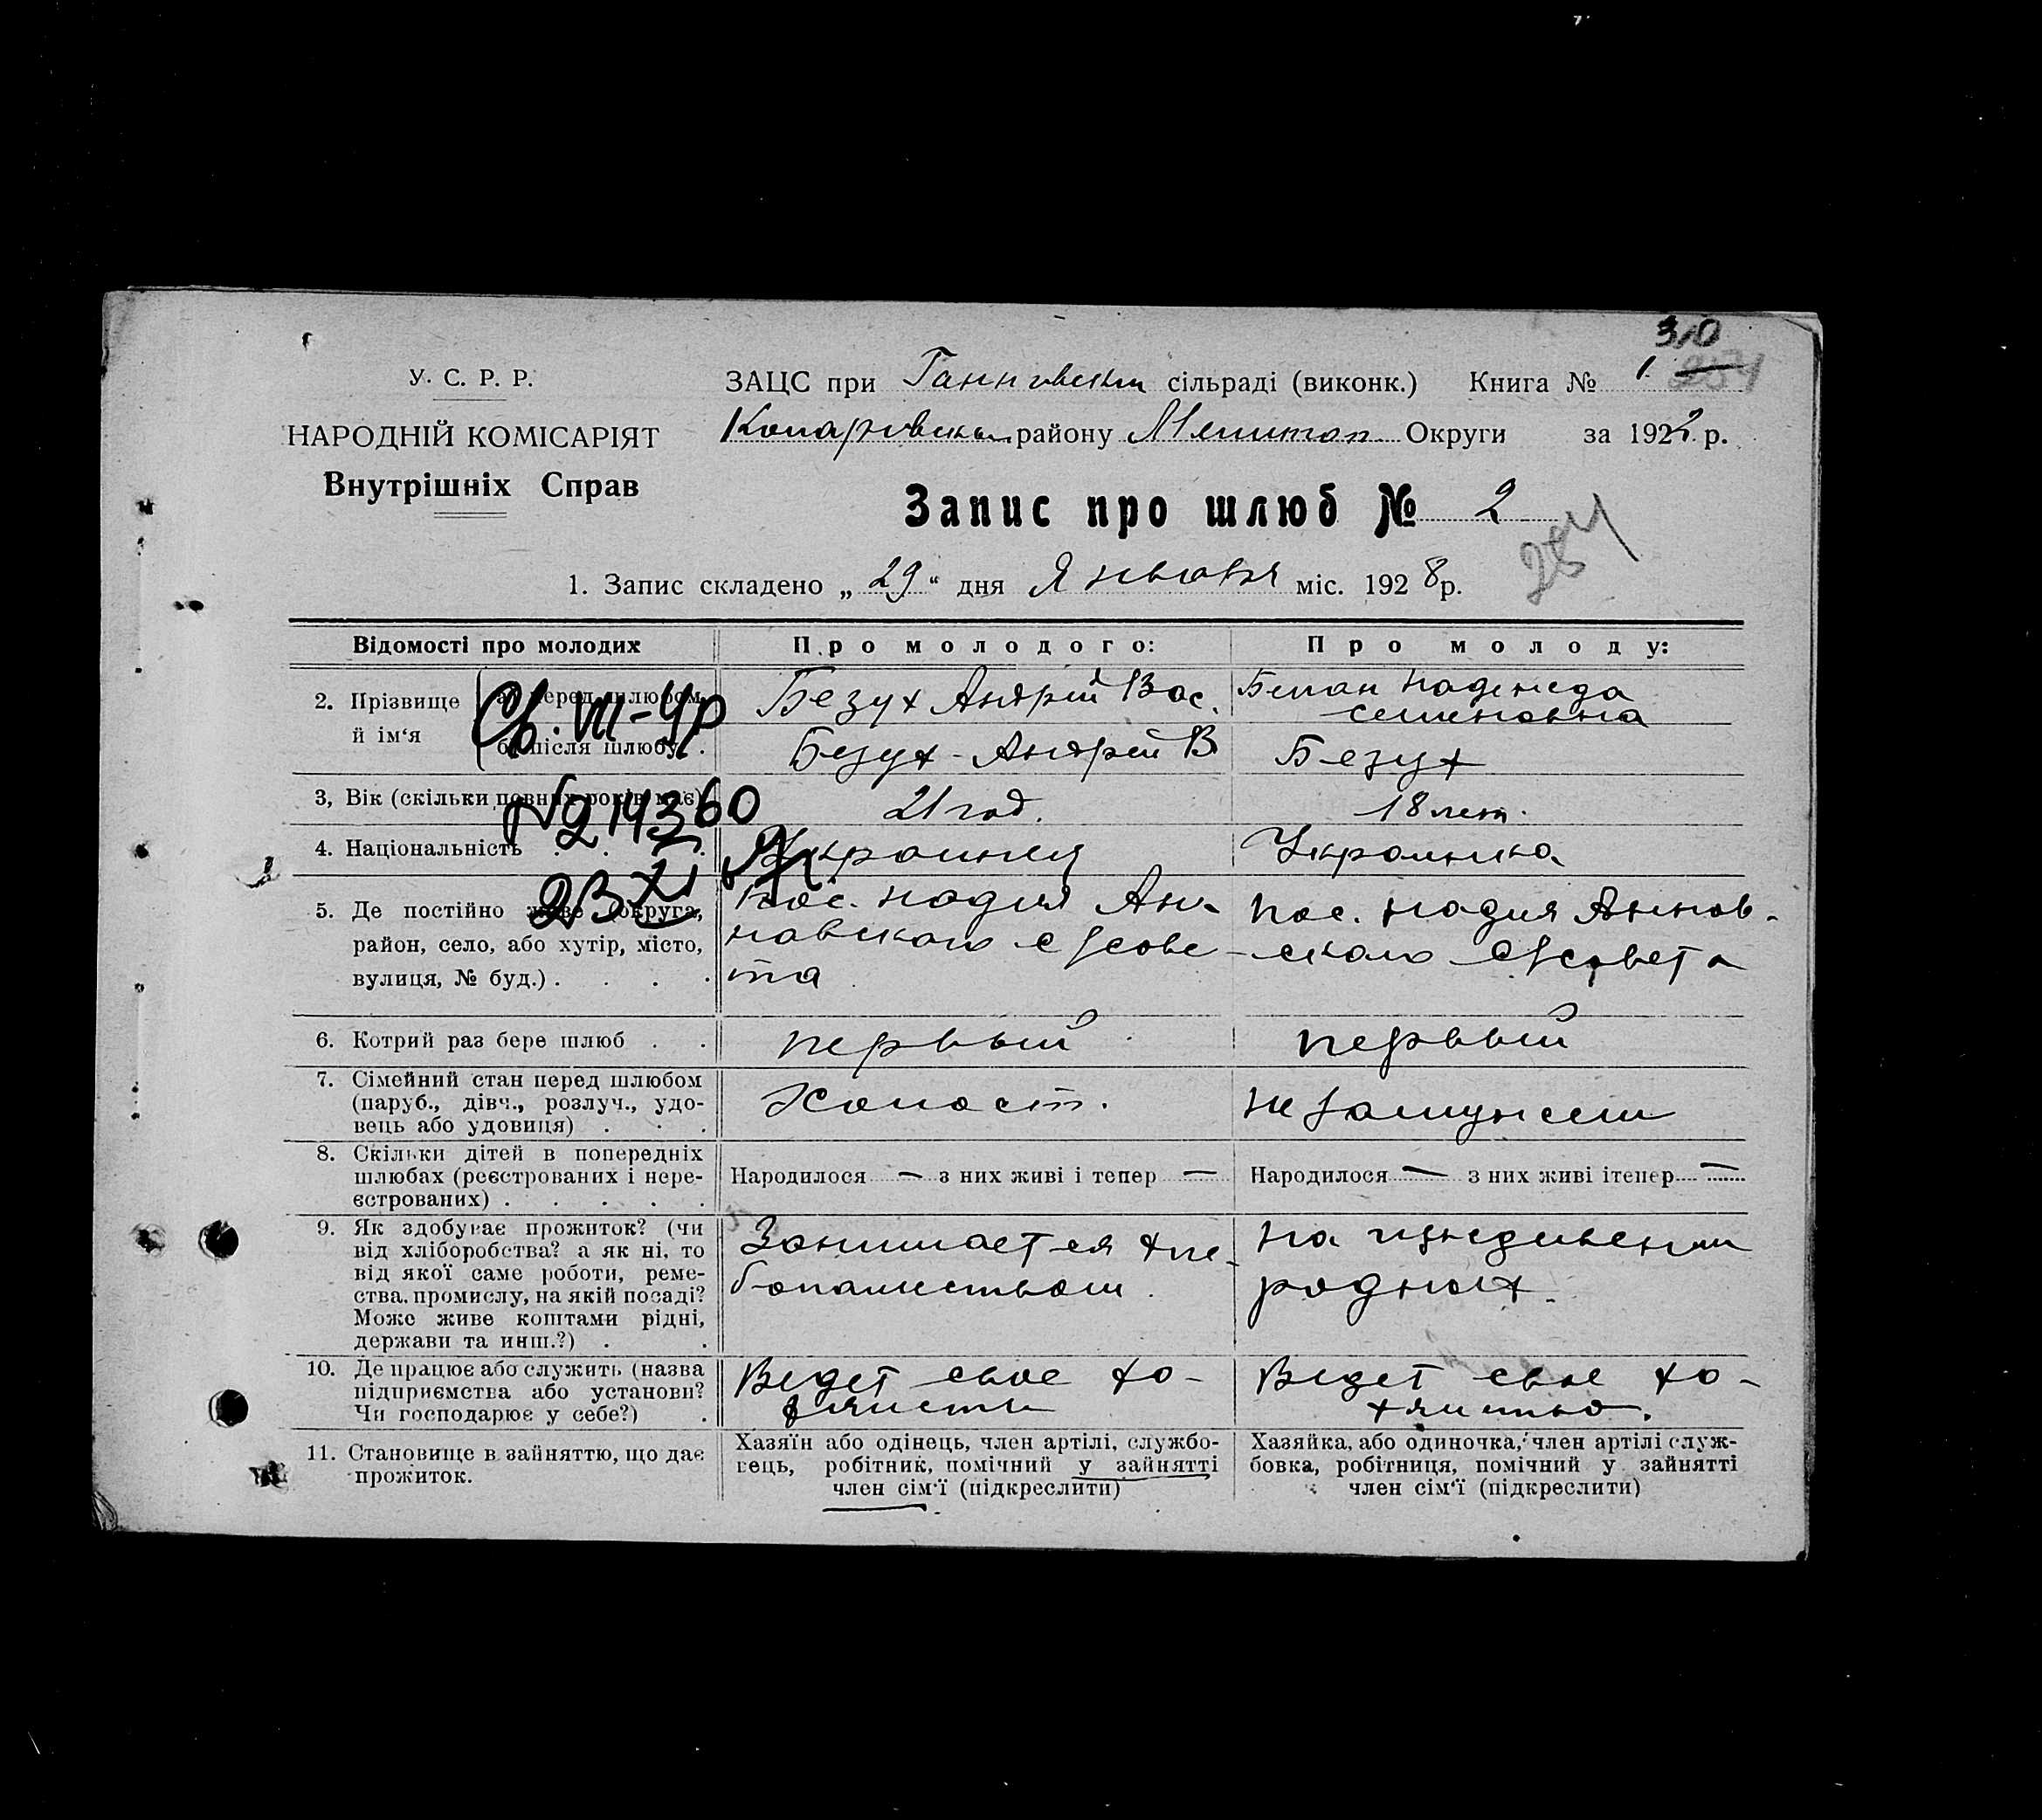 310
У. С. Р. Р.
НАРОДНІЙ КОМІСАРІЯТ
Внутрішніх Справ
ЗАЦС при Ганновском сільраді (виконк.) Книга № 1
району Мелитоп. Округи за 192 р.
Запис про шлюб № 2
284
1. Запис складено „29" дня Января міс. 1928 р.
Відомості про молодих
Про молодого:
Про молоду:
2. Прізвище й ім'я
а) перед шлюбом
Безух Андрій Вас.
Надежда
Семеновна
б) після шлюбу
Безух - Андрей В
Безух
Св. VIII-УР
3, Вік (скільки повних років має)
21 год.
18 лет.
№ 214360
4. Національність
Украинец
Украинка
23 XI
5. Де постійно живе (округа,
район, село, або хутір, місто,
вулиця, № буд.)
Пос. Надия Ан-
новского с/сове-
та
Пос. Надия Аннов-
ского с/совета
6. Котрий раз бере шлюб
первый
первый
7. Сімейний стан перед шлюбом
(паруб., дівч., розлуч., удо-
вець або удовиця)
Холост.
Не замужем
8. Скільки дітей в попередніх
шлюбах (реєстрованих і нере-
єстрованих)
Народилося — з них живі і тепер —
Народилося — з них живі ітепер —
9. Як здобуває прожиток? (чи
від хліборобства? а як ні, то
від якої саме роботи, реме-
ства, промислу, на якій посаді?
Може живе коштами рідні,
держави та инш.?)
Занимается хле-
бопашеством.
На иждивении
родных.
10. Де працює або служить (назва
підприємства або установи?
Чи господарює у себе?)
Ведет свое хо-
зяйство
Ведет свое хо-
зяйство.
11. Становище в зайняттю, що дає
прожиток.
Хазяїн або одінець, член артілі, службо-
вець, робітник, помічний у зайнятті
член сім'ї (підкреслити)
Хазяйка, або одиночка, член артілі служ-
бовка, робітниця, помічний у зайнятті
член сім'ї (підкреслити)